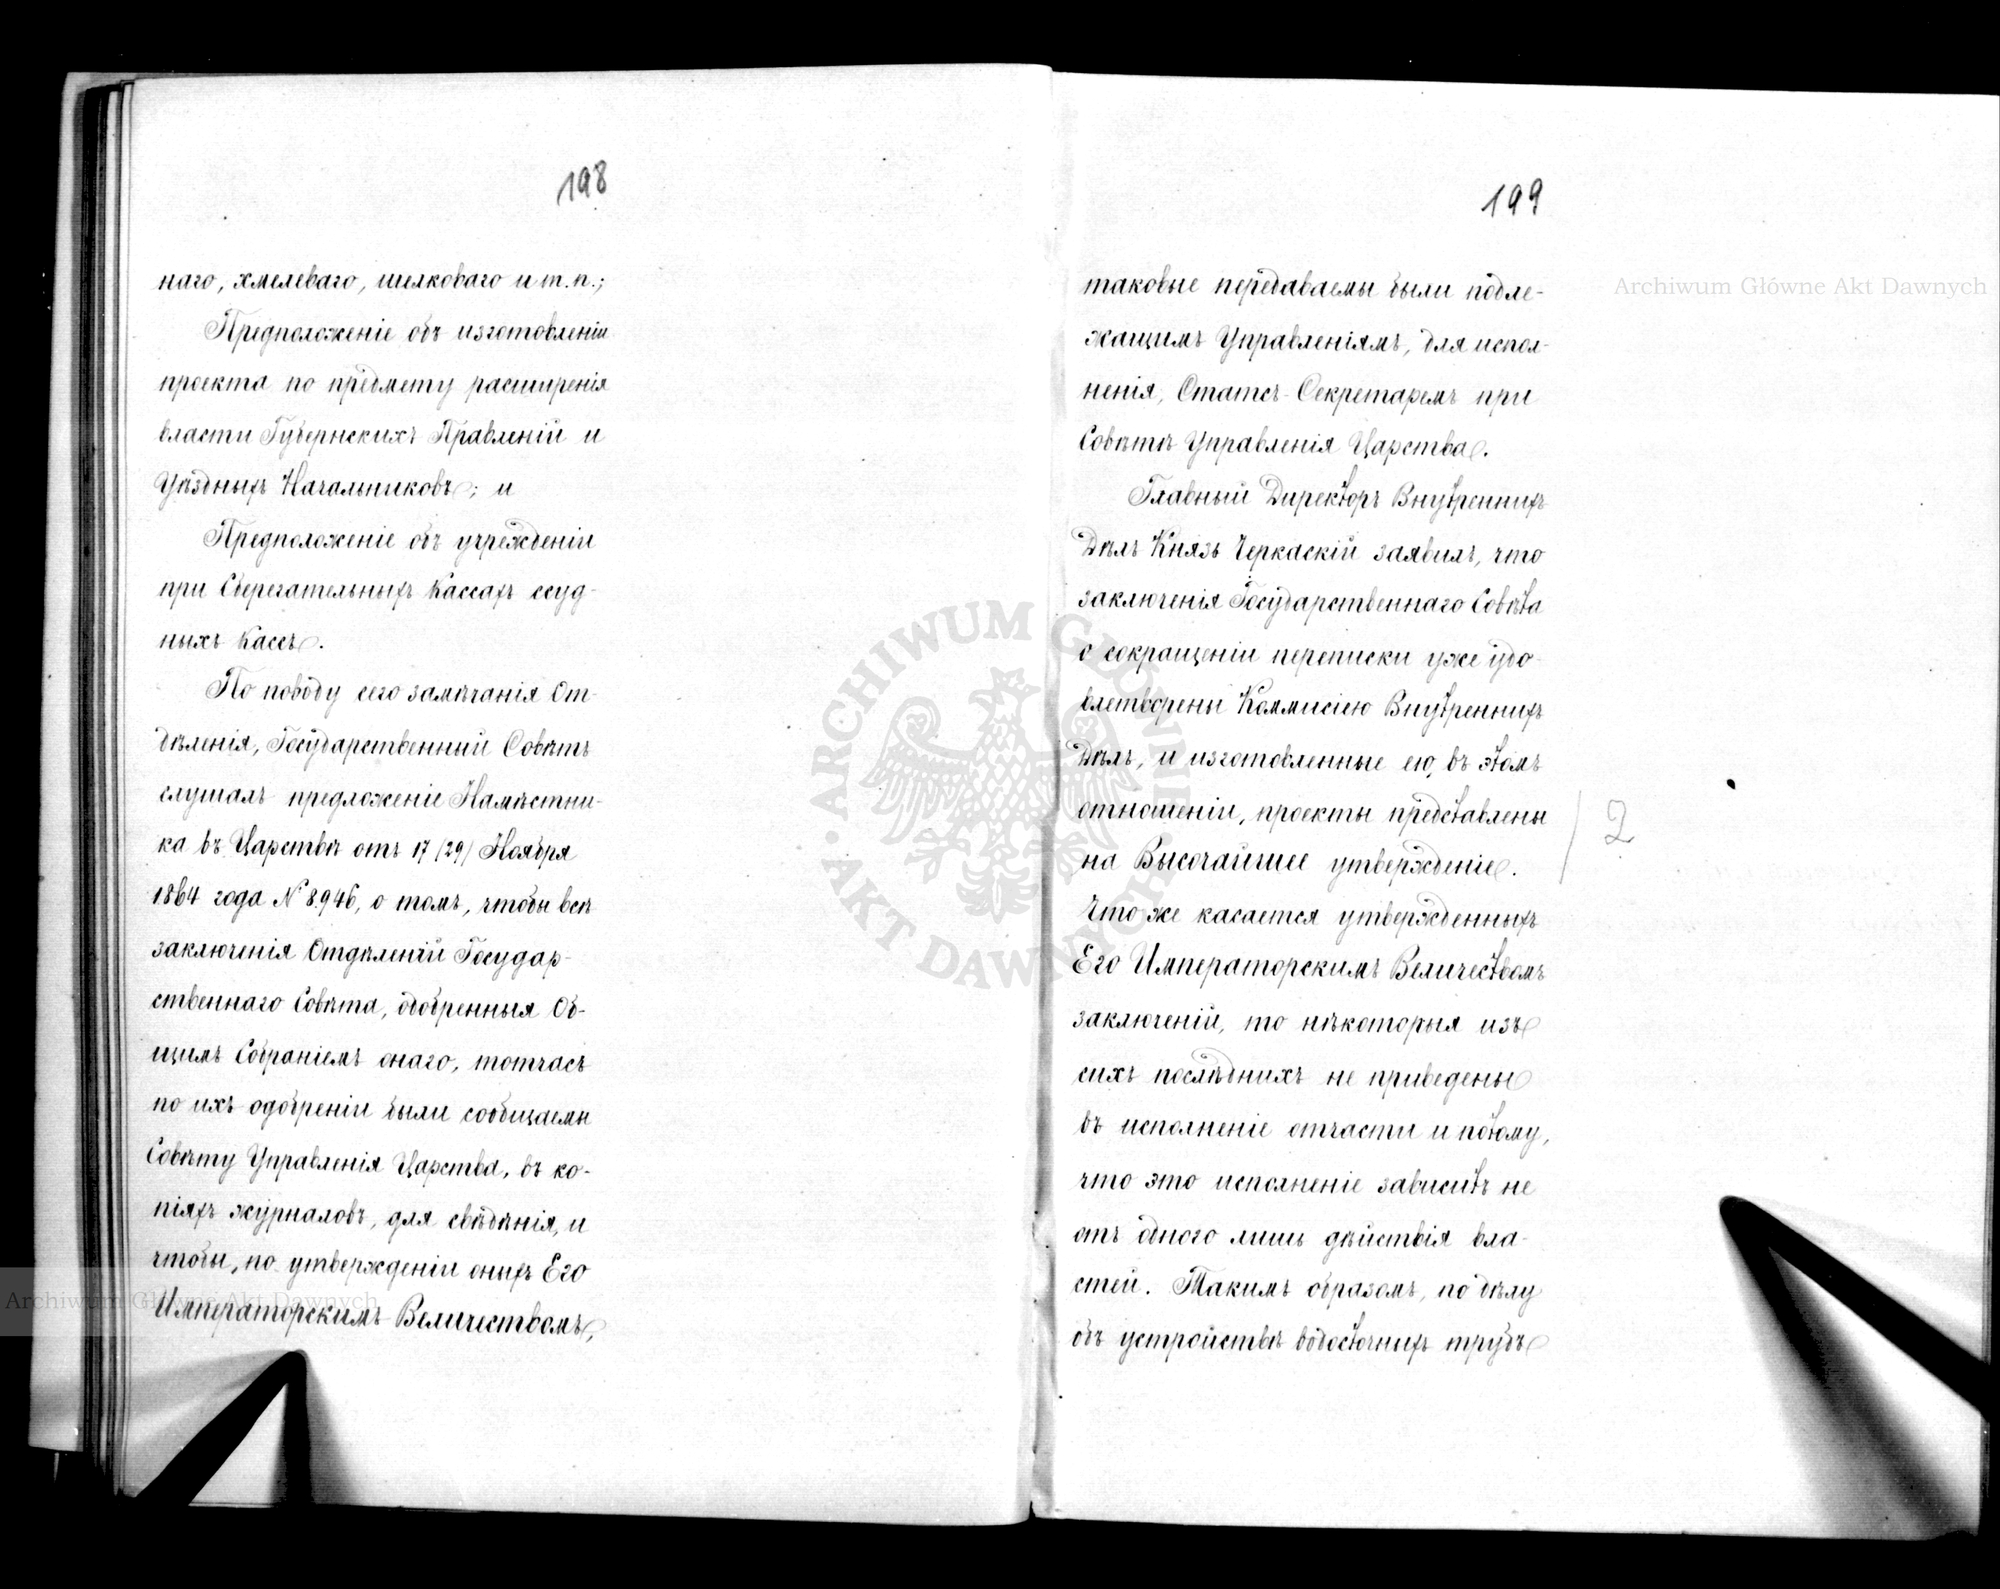 198
наго, хмелеваго, шелковаго и т.п.;
Предположеніе объ изготовленіи
проекта по предмету расширенія
власти Губернскихъ Правленій и
Уѣздныхъ Начальниковъ; и
Предположеніе объ учрежденіи
при Сберегательныхъ Кассахъ ссуд-
ныхъ кассъ.
По поводу сего замѣчанія От-
дѣленія, Государственный Совѣтъ
слушалъ предложеніе Намѣстни-
ка въ Царствѣ отъ 17 (29) Ноября
1864 года № 8.946, о томъ, чтобы всѣ
заключенія Отдѣленій Государ-
ственнаго Совѣта, одобренныя Об-
щимъ Собраніемъ онаго, тотчасъ
по ихъ одобреніи были сообщаемы
Совѣту Управленія Царства, въ ко-
піяхъ журналовъ, для свѣдѣнія, и
чтобы, по утвержденіи оныхъ Его
Императорскимъ Величествомъ,
199
таковые передаваемы были подле-
жащимъ Управленіямъ, для испол-
ненія, Статсъ-Секретаремъ при
Совѣтѣ Управленія Царства.
Главный Директоръ Внутреннихъ
Дѣлъ Князь Черкаскій заявилъ, что
заключенія Государственнаго Совѣта
о сокращеніи переписки уже удо-
влетворены Коммисіею Внутреннихъ
Дѣлъ, и изготовленные ею, въ этомъ
отношеніи, проекты представлены
на Высочайшее утвержденіе.
2
Что же касается утвержденныхъ
Его Императорскимъ Величествомъ
заключеній, то нѣкоторыя изъ
сихъ послѣднихъ не приведены
въ исполненіе отчасти и потому,
что это исполненіе зависитъ не
отъ одного лишь дѣйствія вла-
стей. Такимъ образомъ, по дѣлу
объ устройствѣ водосточныхъ трубъ
Archiwum Główne Akt Dawnych
ARCHIWUM GŁÓWNE
AKT DAWNYCH
Archiwum Główne Akt Dawnych